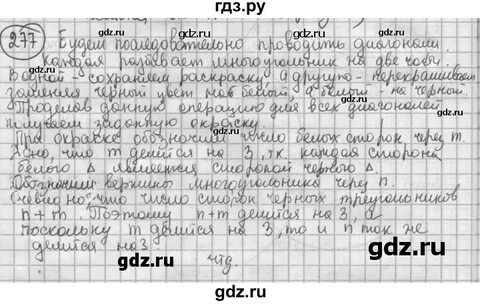 гдз.рф
277 Будем последовательно проводить диагонали.
Каждая разбивает многоугольник на две части.
В одной - сохраняем раскраску, а другую - перекрашиваем
заменяя черный цвет на белый, а белый - на черный.
Проделав данную операцию для всех диагоналей
получаем заданную окраску.
При окраске обозначим число белых сторон через m.
Ясно, что m делится на 3, т.к. каждая сторона
белого Δ является стороной черного Δ.
Обозначим вершины многоугольника через n.
Очевидно, что число сторон черных треугольников
n+m. Поэтому n+m делится на 3, а
поскольку m делится на 3, то и n так же
делится на 3.
чтд.
гдз.рф